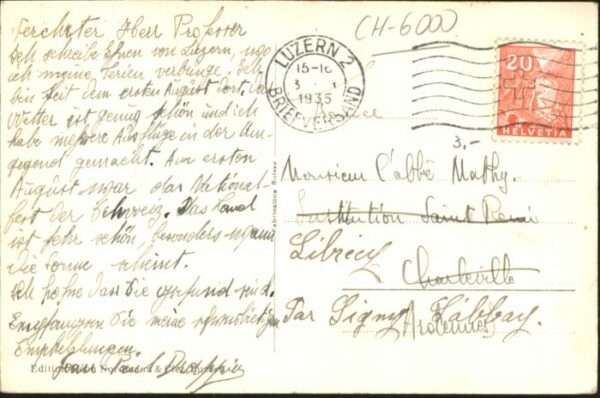 Verehrter Herr Professor
Ich schreibe Ihnen von Luzern, wo
ich meine Ferien verbringe. Ich
bin seit dem ersten August dort. Das
Wetter ist genug schön und ich
habe mehrere Ausflüge in der Um-
gegend gemacht. Am ersten
August war das National-
fest der Schweiz. Das Land
ist sehr schön, besonders wenn
die Sonne scheint.
Ich hoffe dass Sie gesund sind.
Empfangen Sie meine
Empfehlungen.
Jean Paul
CH-6000
LUZERN 2
15-16
1935
BRIEFVERSAND
20
HELVETIA
3,-
Monsieur l'abbé Mathy.
Institution Saint Remi
Librecy
Charleville
Par Signy l'Abbay.
(Ardennes)